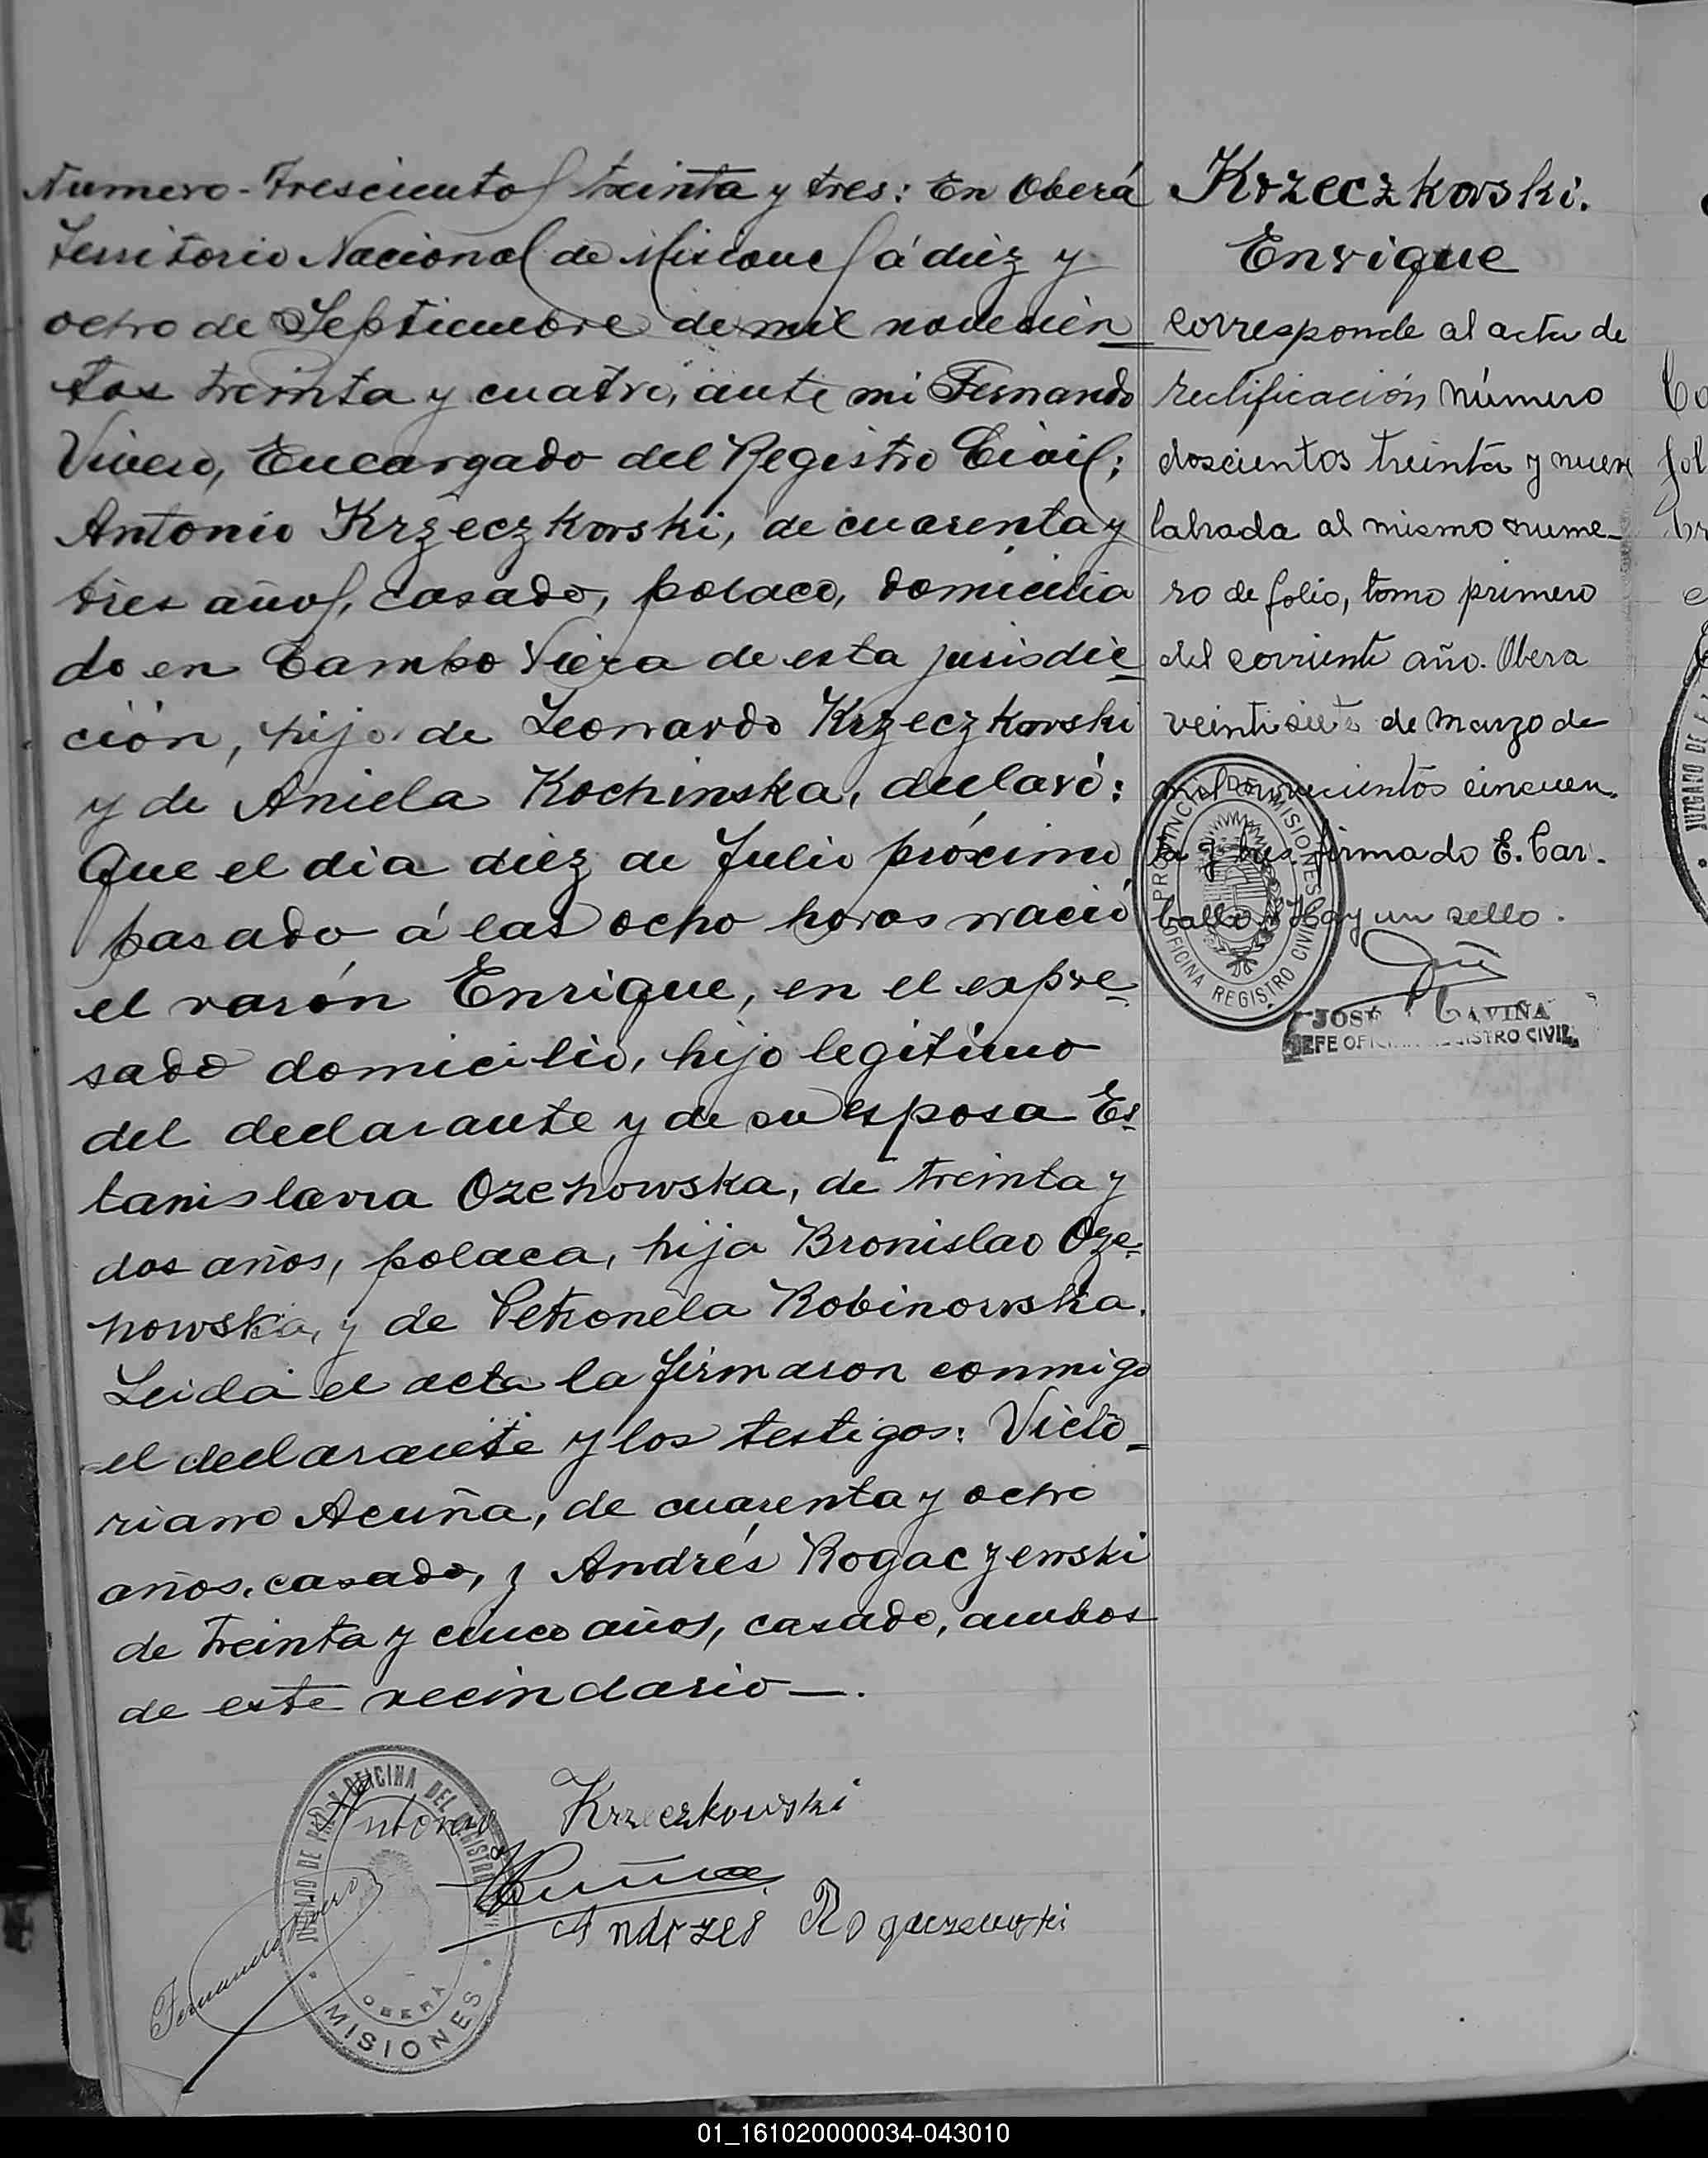 Numero - Trescientos treinta y tres: En Oberá
Territorio Nacional de Misiones á diez y
ocho de Septiembre de mil novecien
tos treinta y cuatro, ante mi Fernando
Vivero, Encargado del Registro Civil;
Antonio Krzeczkowski, de cuarenta y
tres años, casado, polaco, domicilia
do en Campo Viera de esta jurisdic
ción, hijo de Leonardo Krzeczkowski
y de Aniela Kochinska, declaró:
Que el dia diez de Julio próximo
pasado á las ocho horas nació
el varón Enrique, en el expre-
sado domicilio, hijo legítimo
del declarante y de su esposa Es
tanislava Ozehowska, de treinta y
dos años, polaca, hija Bronislao Oze-
howska, y de Petronela Robinowska.
Leida el acta la firmaron conmigo
el declarante y los testigos: Victo-
riano Acuña, de cuarenta y ocho
años, casado, y Andrés Rogaczewski
de treinta y cinco años, casado, ambos
de este vecindario —.
Antonio Krzeczkowski
Acuña
Andrzej Rogaczewski
Fernando Vivero
JUZGADO DE PAZ Y OFICINA DEL REGISTRO CIVIL
OBERÁ
MISIONES
Krzeczkowski.
Enrique
corresponde al acta de
rectificación número
doscientos treinta y nueve
labrada al mismo nume-
ro de folio, tomo primero
del corriente año. Obera
veintisiete de marzo de
mil novecientos cincuen-
ta y tres. firmado E. Car-
ballo. Hay un sello.
PROVINCIA DE MISIONES
OFICINA REGISTRO CIVIL
JOSE GAVIÑA
JEFE OFICINA REGISTRO CIVIL
JUZGADO DE
01_161020000034-043010